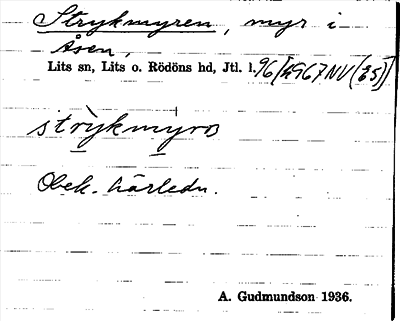 Strykmyren, myr i
Åsen,
Lits sn, Lits o. Rödöns hd, Jtl. l. 96
strykmyra
Obek. härledn.
A. Gudmundson 1936.